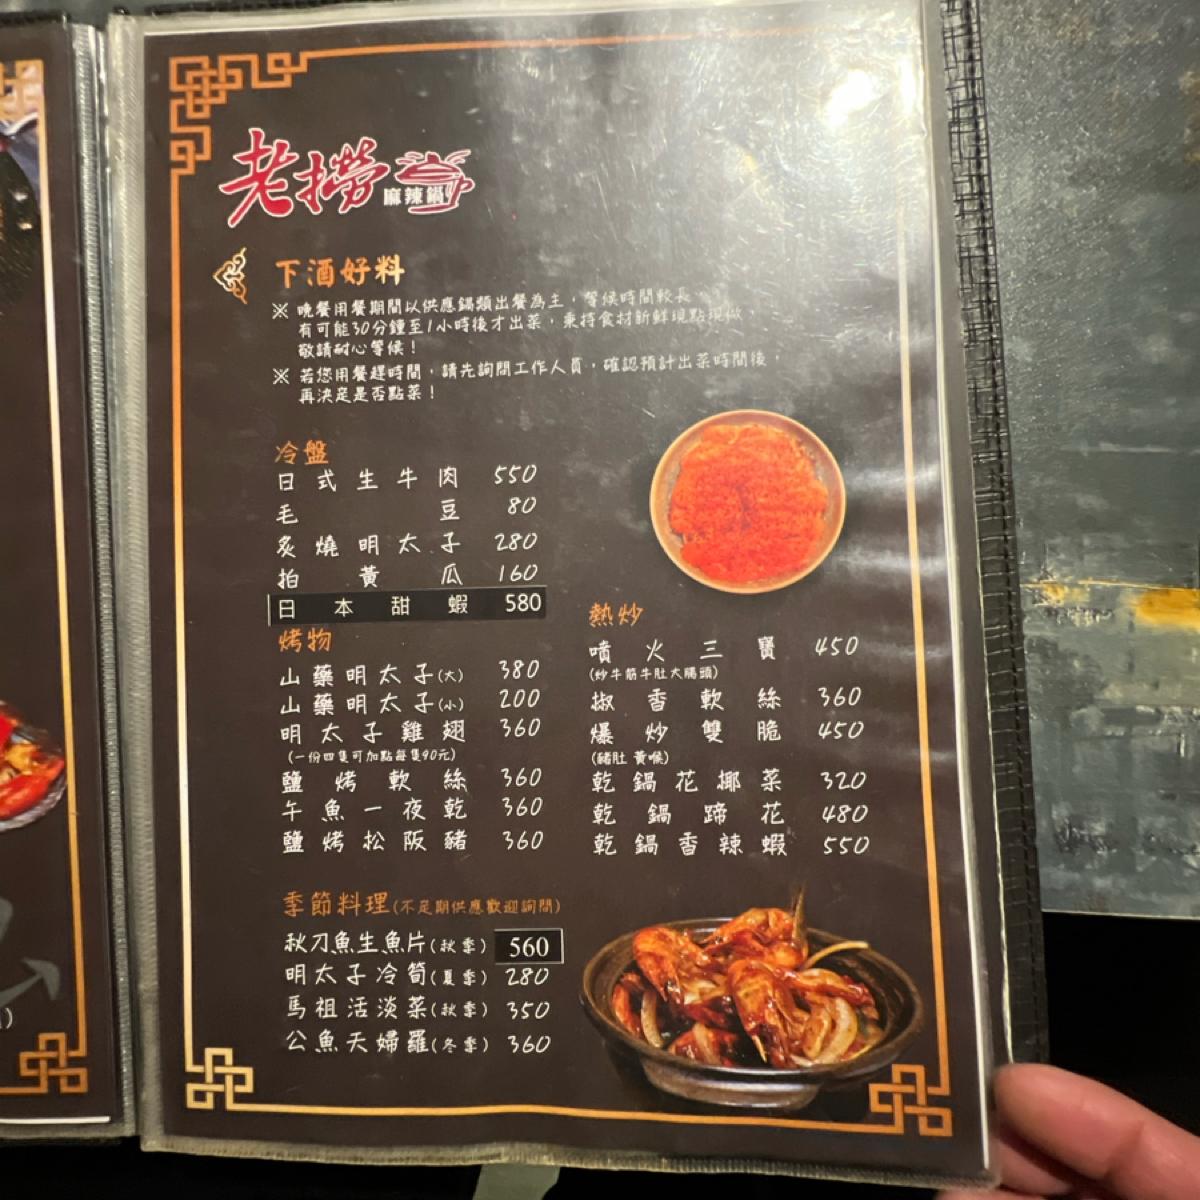 老撈
麻辣鍋
下酒好料
※ 晚餐用餐期間以供應鍋類出餐為主，等候時間較長，
有可能30分鐘至1小時後才出菜，秉持食材新鮮現點現做，
敬請耐心等候！
※ 若您用餐趕時間，請先詢問工作人員，確認預計出菜時間後，
再決定是否點菜！
冷盤
日式生牛肉 550
毛豆 80
炙燒明太子 280
拍黃瓜 160
日本甜蝦 580
烤物
山藥明太子(大) 380
山藥明太子(小) 200
明太子雞翅 360
(一份四隻可加點每隻90元)
鹽烤軟絲 360
午魚一夜乾 360
鹽烤松阪豬 360
熱炒
噴火三寶 450
(炒牛筋牛肚大腸頭)
椒香軟絲 360
爆炒雙脆 450
(豬肚 黃喉)
乾鍋花椰菜 320
乾鍋蹄花 480
乾鍋香辣蝦 550
季節料理(不定期供應歡迎詢問)
秋刀魚生魚片(秋季) 560
明太子冷筍(夏季) 280
馬祖活淡菜(秋季) 350
公魚天婦羅(冬季) 360